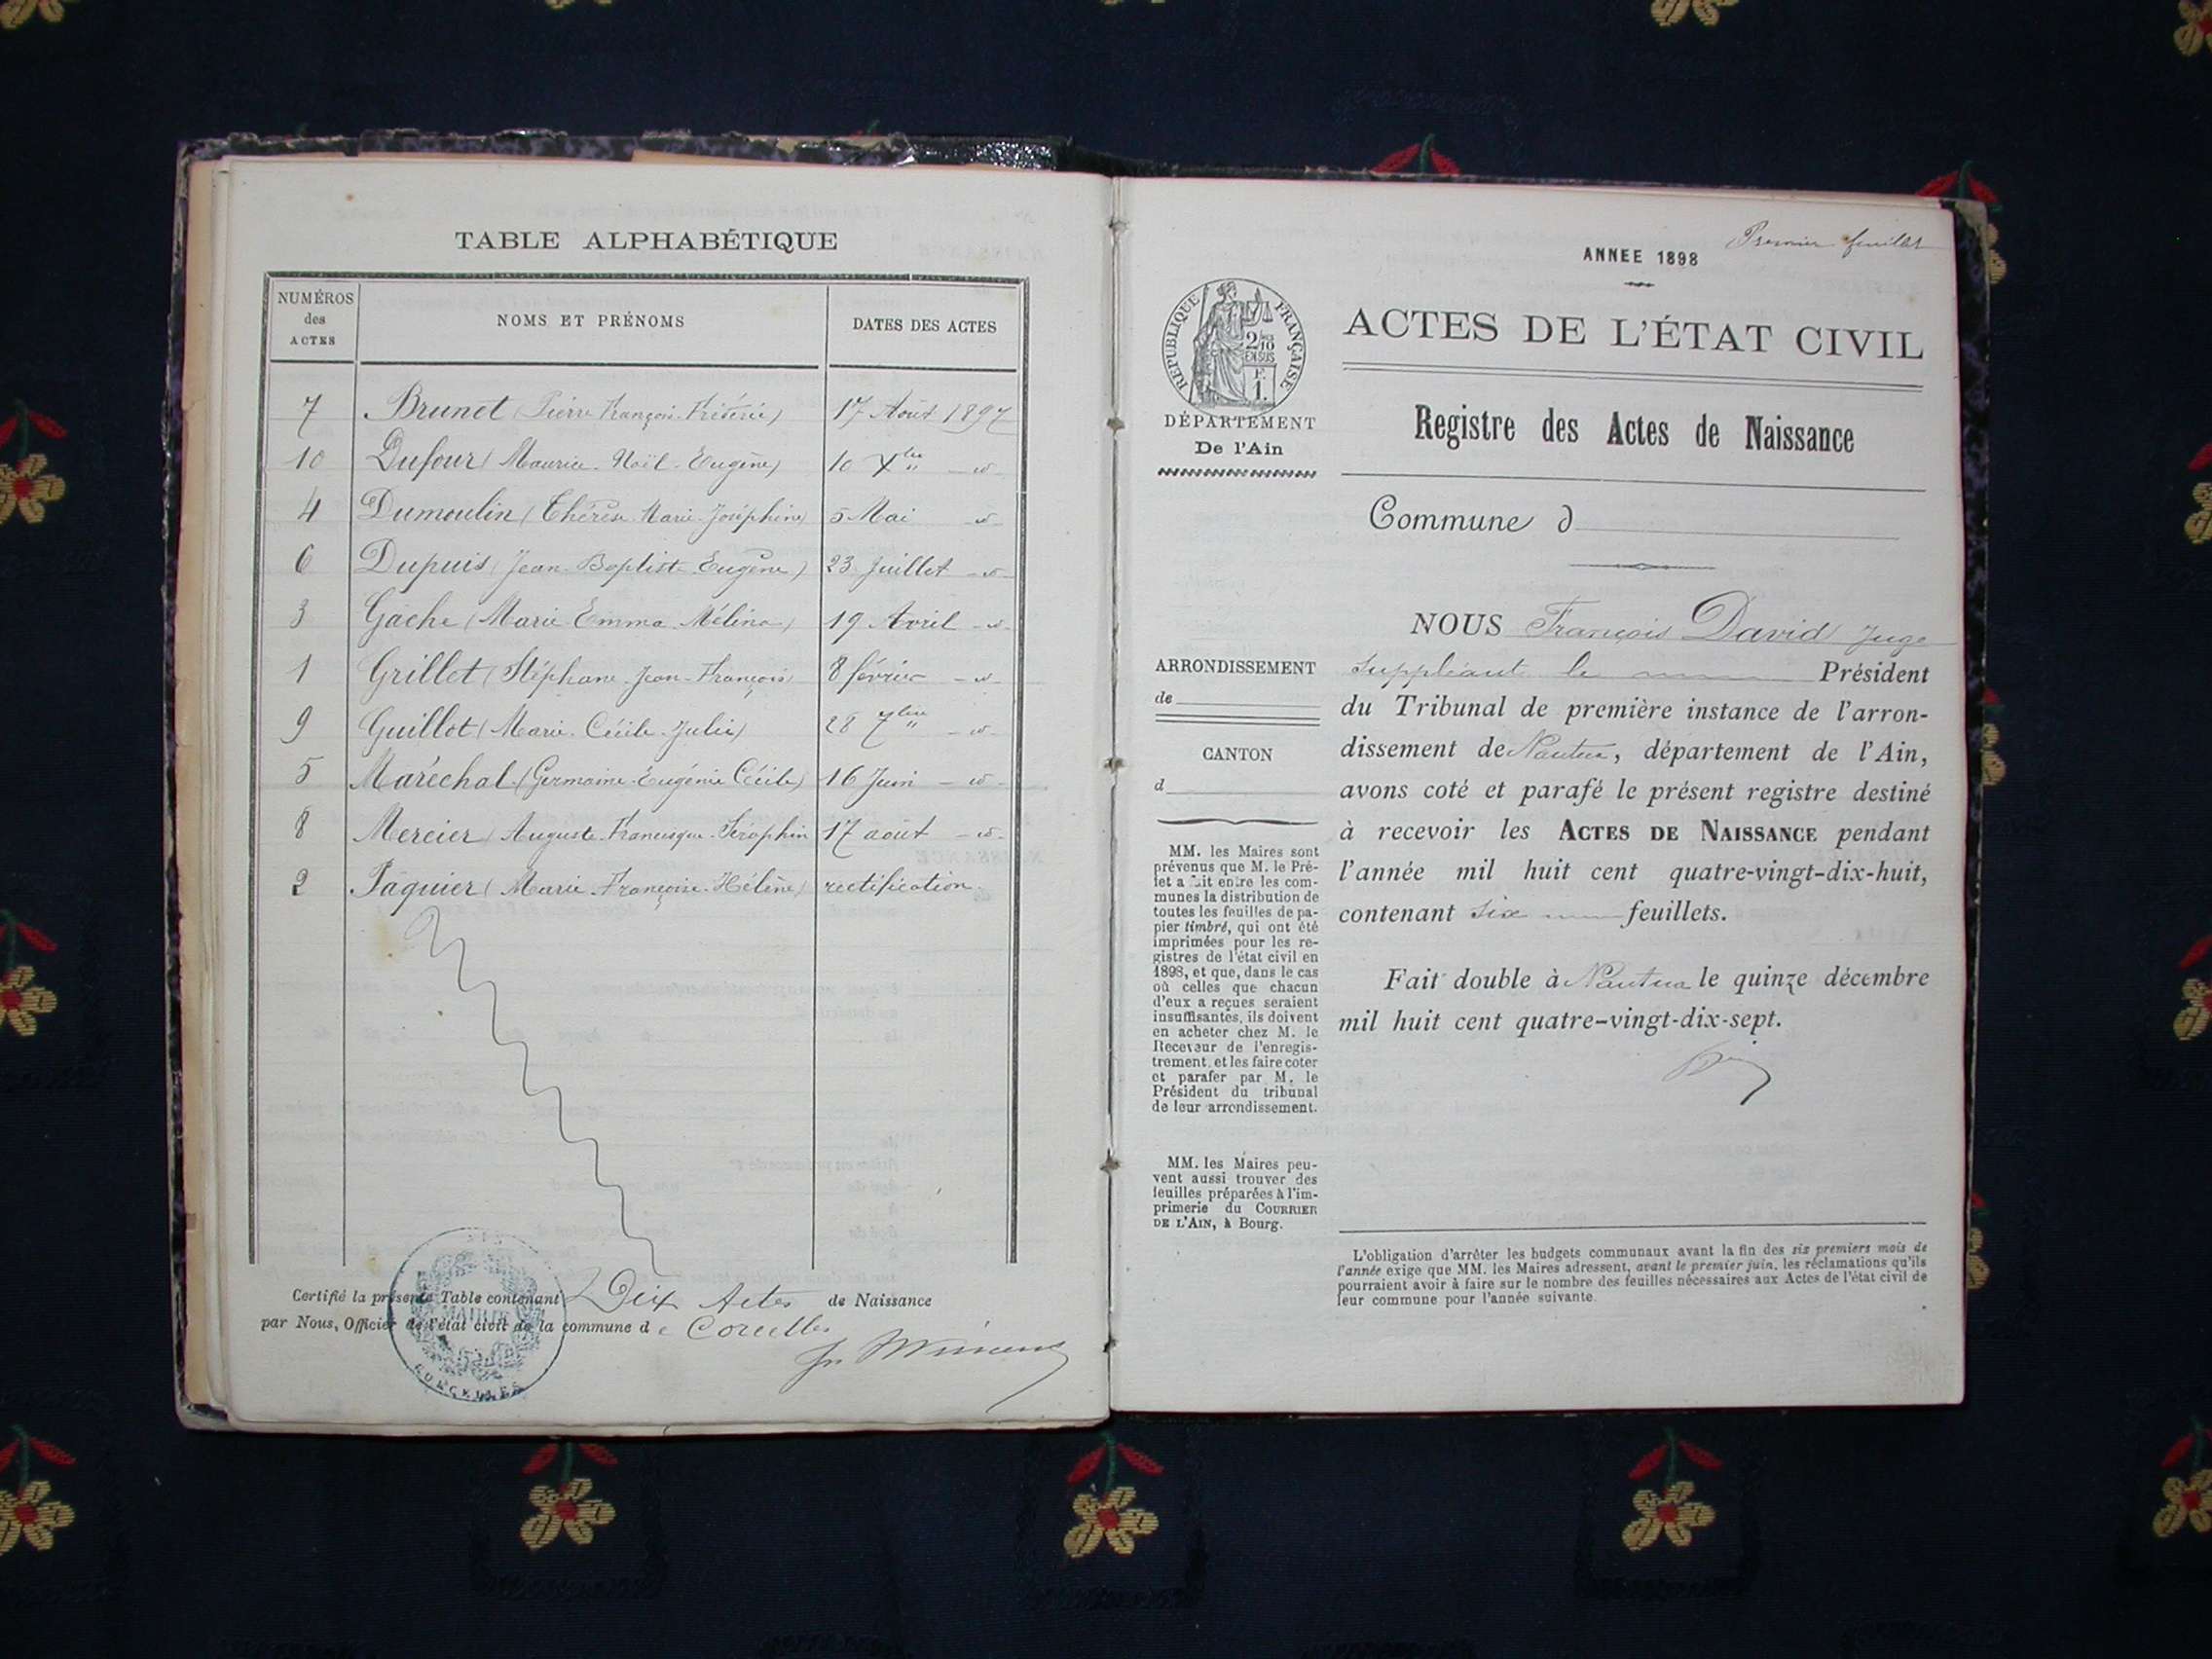 TABLE ALPHABÉTIQUE
NUMÉROS
des
ACTES
NOMS ET PRÉNOMS
DATES DES ACTES
7 Brunet (Pierre François Frédéric) 17 Août 1897
10 Dufour (Maurice Noël Eugène) 10 Xbre -d-
4 Dumoulin (Thérèse Marie Joséphine) 5 Mai -d-
6 Dupuis (Jean Baptiste Eugène) 23 Juillet -d-
3 Gache (Marie Emma Mélina) 19 Avril -d-
1 Grillet (Stéphane Jean François) 8 février -d-
9 Guillot (Marie Cécile Julie) 28 7bre -d-
5 Maréchal (Germaine Eugénie Cécile) 16 Juin -d-
8 Mercier (Auguste Francisque Séraphin 17 août -d-
2 Paquier (Marie Françoise Hélène) rectification
Certifié la présente Table contenant Dix Actes de Naissance
par Nous, Officier de l'état civil de la commune de Corcelles
MAIRIE
CORCELLES
Premier feuillet
ANNEE 1898
ACTES DE L'ÉTAT CIVIL
RÉPUBLIQUE FRANÇAISE
2/10
EN SUS
F.
1.
DÉPARTEMENT
De l'Ain
Registre des Actes de Naissance
Commune d
ARRONDISSEMENT
de
CANTON
d
MM. les Maires sont
prévenus que M. le Pré-
fet a fait entre les com-
munes la distribution de
toutes les feuilles de pa-
pier timbré, qui ont été
imprimées pour les re-
gistres de l'état civil en
1898, et que, dans le cas
où celles que chacun
d'eux a reçues seraient
insuffisantes, ils doivent
en acheter chez M. le
Receveur de l'enregis-
trement, et les faire coter
et parafer par M. le
Président du tribunal
de leur arrondissement.
MM. les Maires peu-
vent aussi trouver des
feuilles préparées à l'im-
primerie du COURRIER
DE L'AIN, à Bourg.
NOUS François David Juge
suppléant le Président
du Tribunal de première instance de l'arron-
dissement de Nantua, département de l'Ain,
avons coté et parafé le présent registre destiné
à recevoir les ACTES DE NAISSANCE pendant
l'année mil huit cent quatre-vingt-dix-huit,
contenant six feuillets.
Fait double à Nantua le quinze décembre
mil huit cent quatre-vingt-dix-sept.
L'obligation d'arrêter les budgets communaux avant la fin des six premiers mois de
l'année exige que MM. les Maires adressent, avant le premier juin, les réclamations qu'ils
pourraient avoir à faire sur le nombre des feuilles nécessaires aux Actes de l'état civil de
leur commune pour l'année suivante.